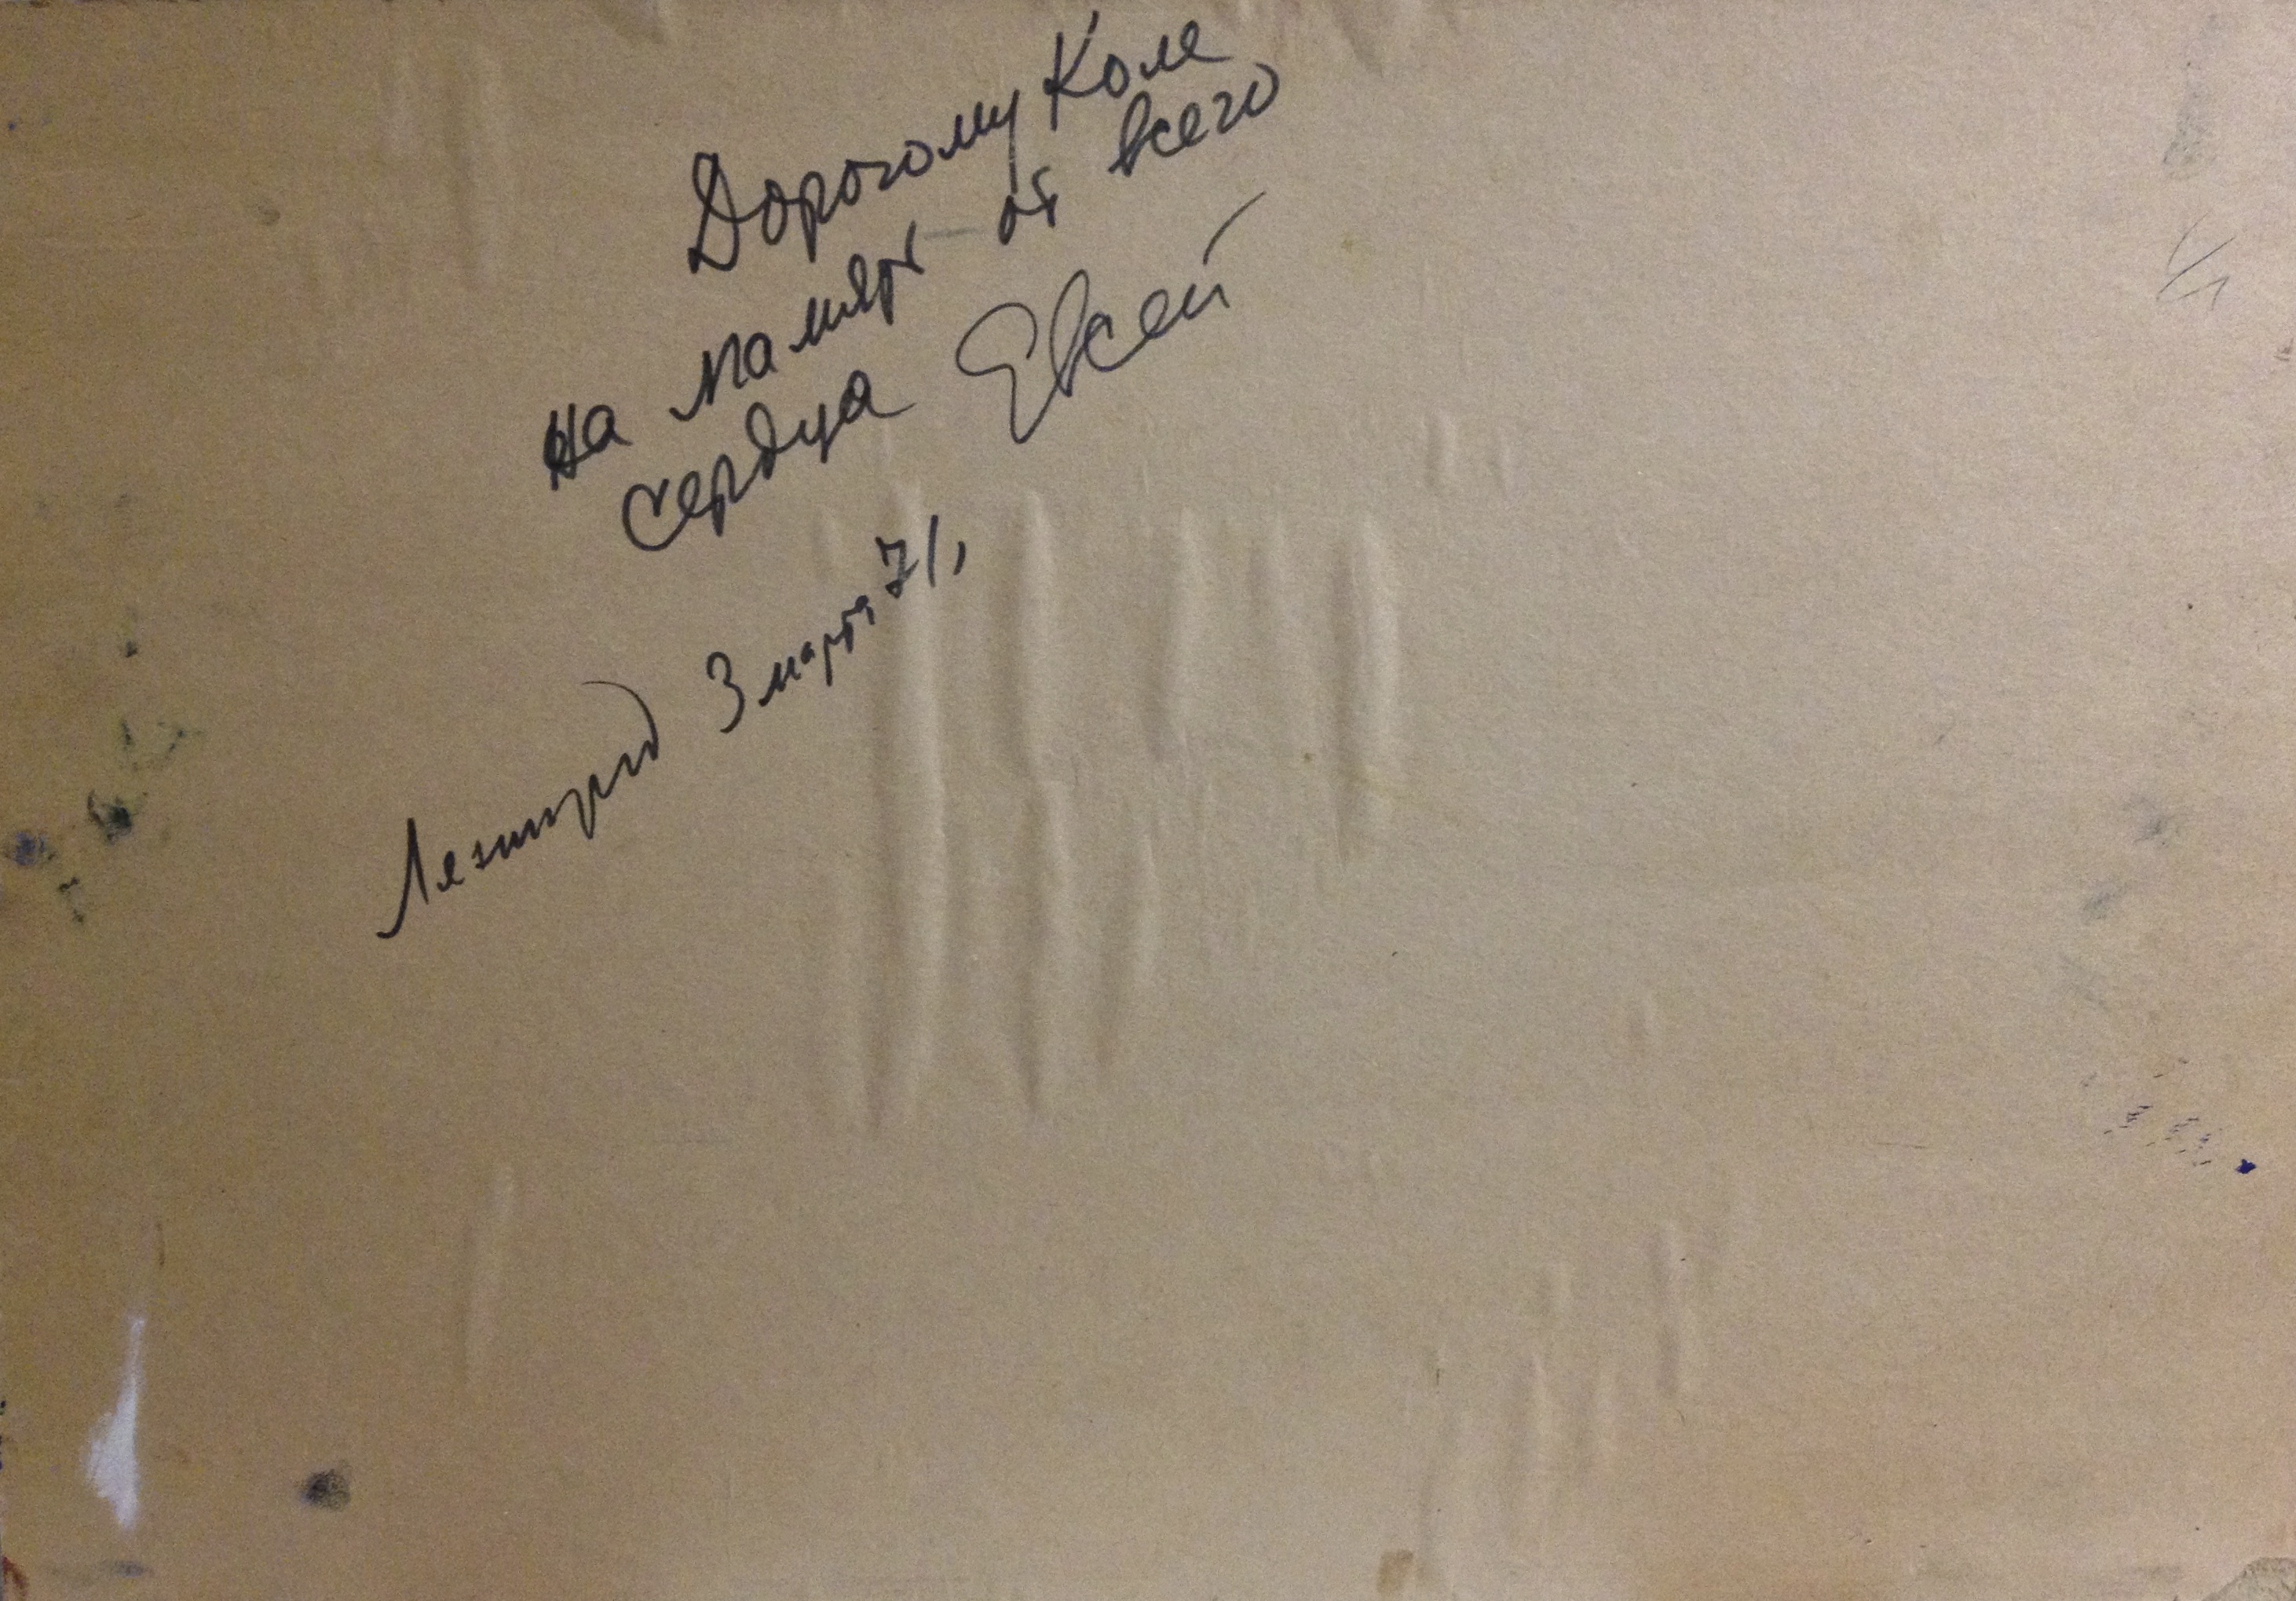 Дорогому Коле
на память от всего
сердца Евсей
Ленинград 3 марта 71,